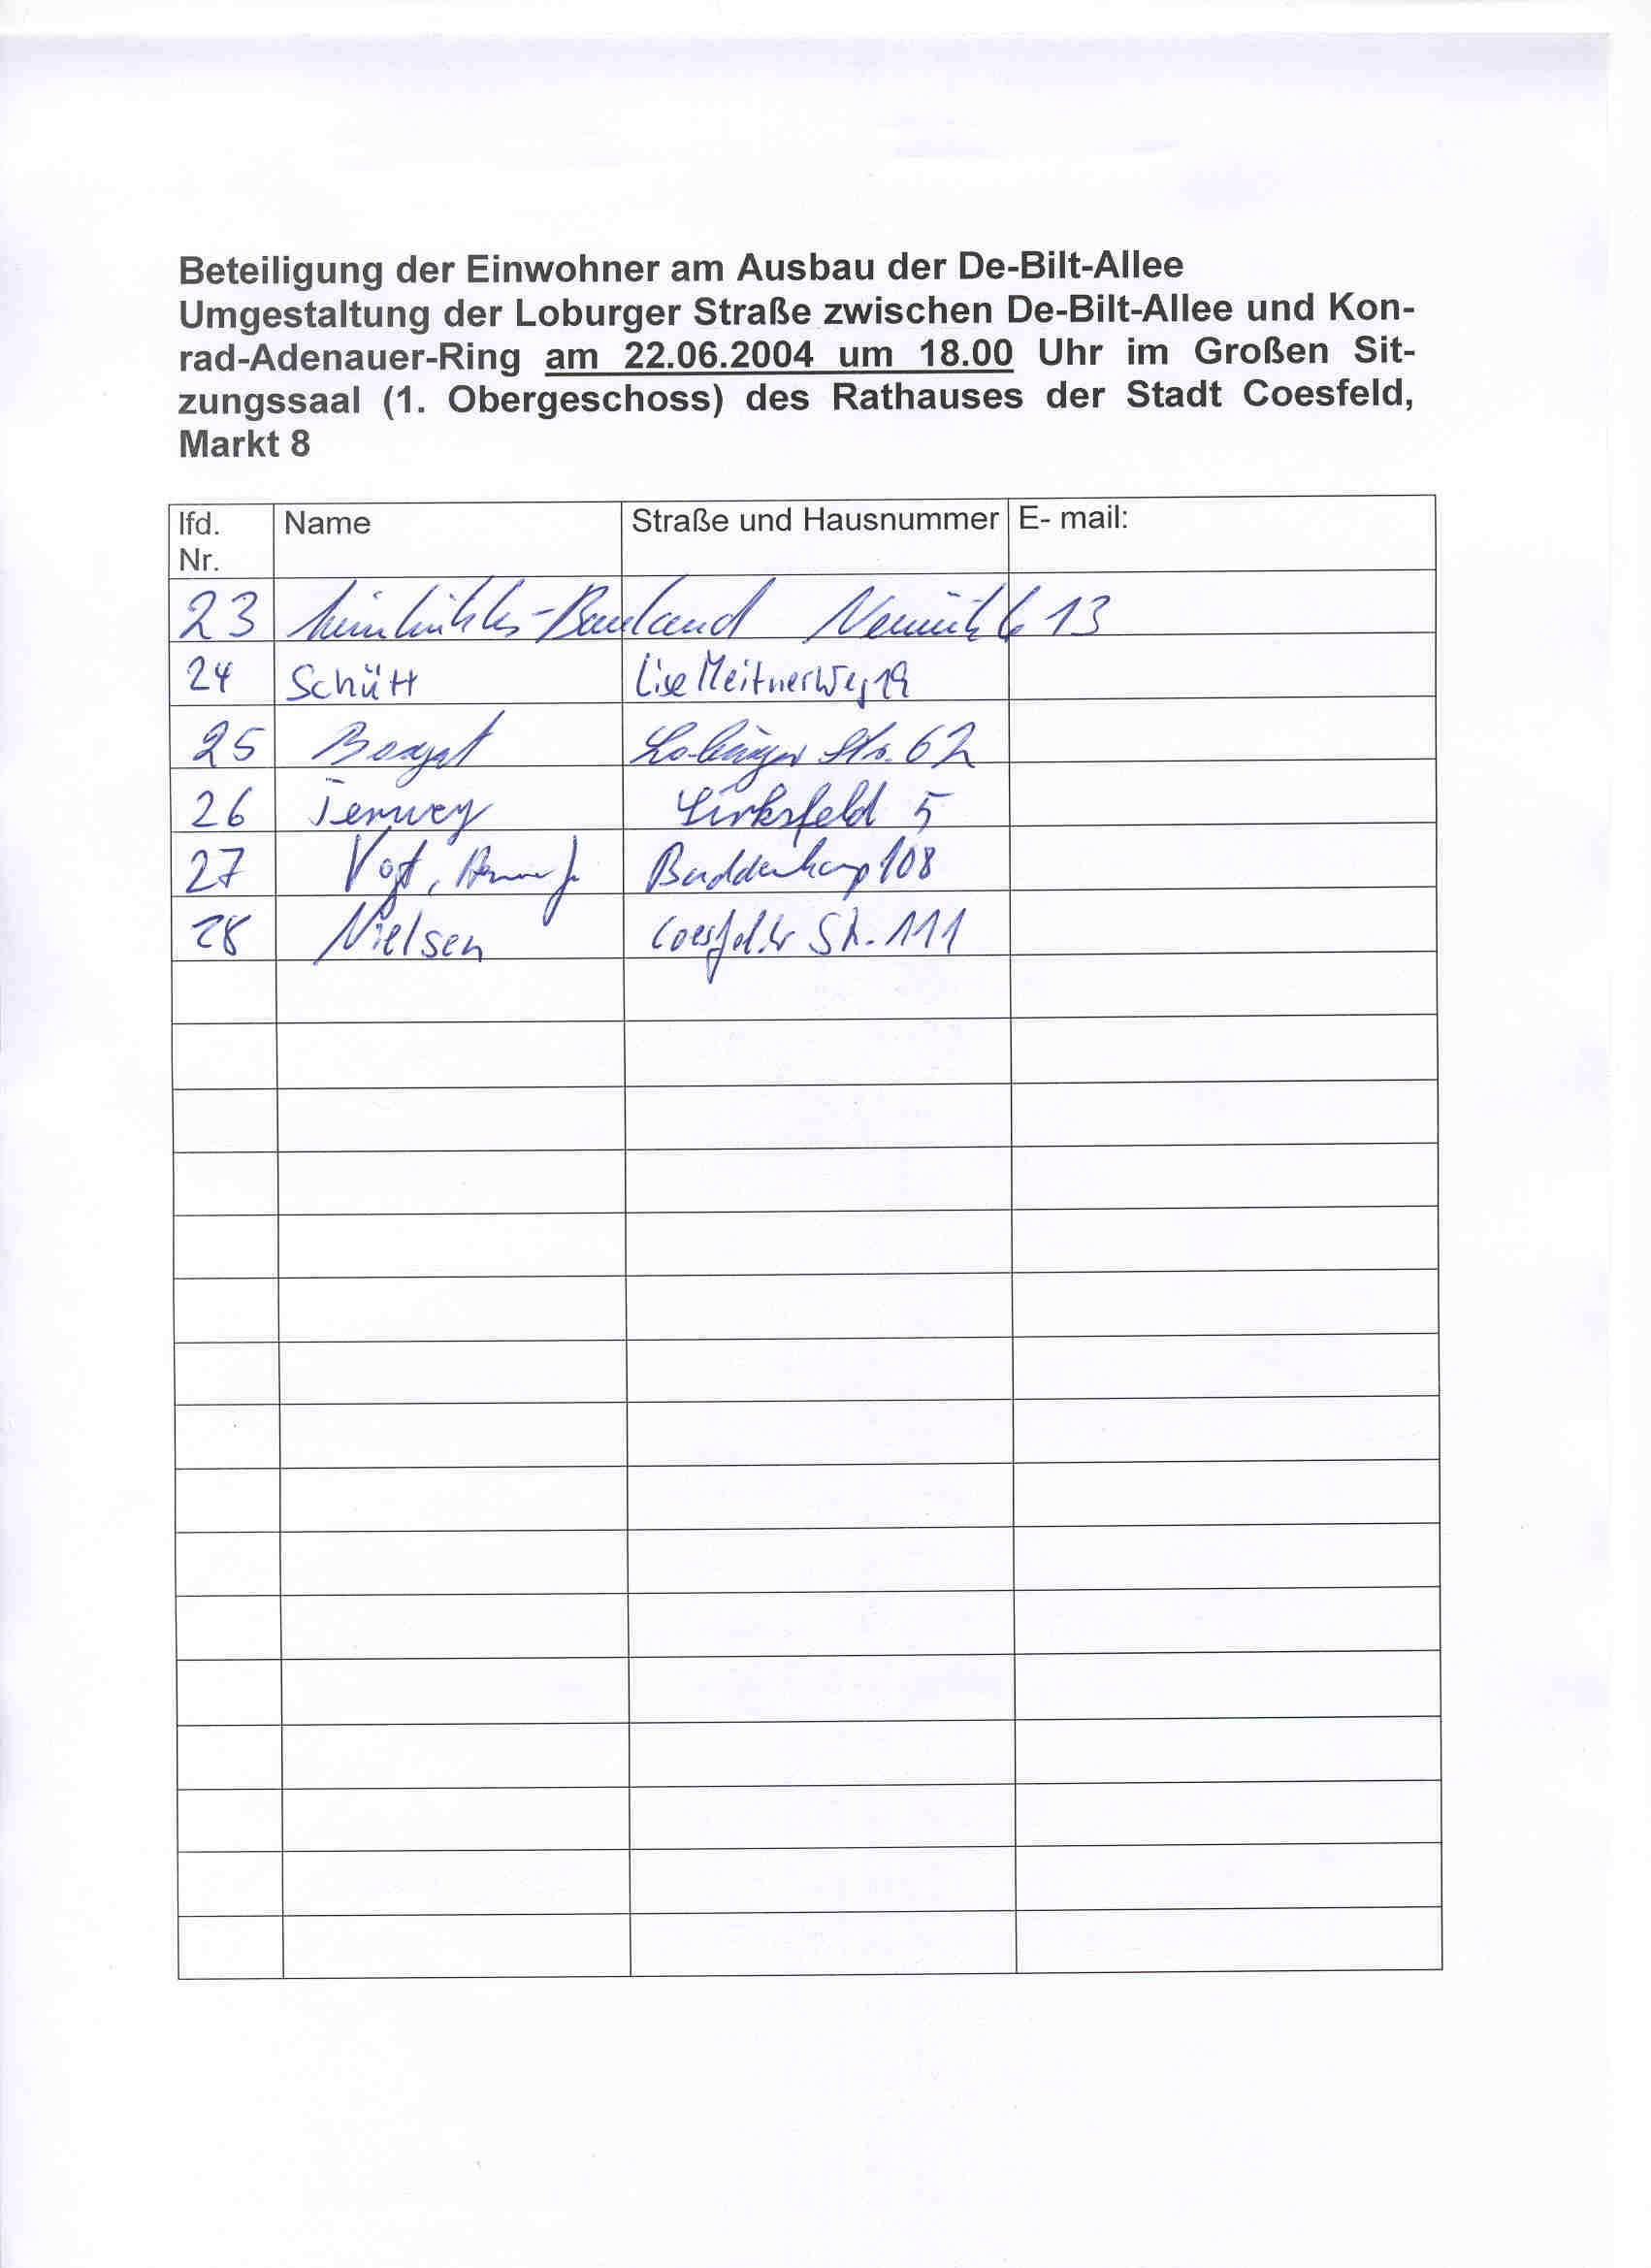 Beteiligung der Einwohner am Ausbau der De-Bilt-Allee
Umgestaltung der Loburger Straße zwischen De-Bilt-Allee und Kon-
rad-Adenauer-Ring am 22.06.2004 um 18.00 Uhr im Großen Sit-
zungssaal (1. Obergeschoss) des Rathauses der Stadt Coesfeld,
Markt 8
lfd. Nr. Name Straße und Hausnummer E- mail:
23 13
24 Schütt Lise Meitner Weg 19
25 Loburger Str. 62
26 Tenwey Lirksfeld 5
27 Vogt, Buddenkamp 108
28 Nielsen Coesfelder Str. 111